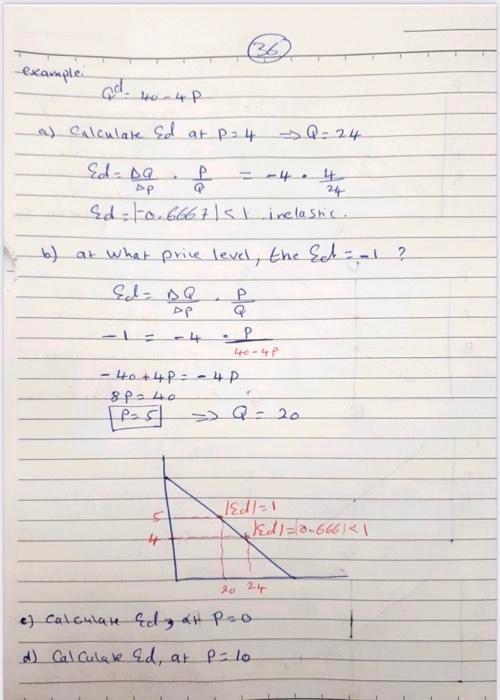 36
example:
Qd = 40 - 4P
a) Calculate Ed at P = 4 ⇒ Q = 24
Ed = ΔQ/ΔP · P/Q = -4 · 4/24
Ed = |-0.6667| < 1 inelastic.
b) at what price level, the Ed = -1 ?
Ed = ΔQ/ΔP · P/Q
-1 = -4 · P/(40-4P)
-40 + 4P = -4P
8P = 40
P = 5 ⇒ Q = 20
5 |Ed| = 1
4 |Ed| = |0.666| < 1
20 24
c) Calculate Ed, at P = 0
d) Calculate Ed, at P = 10